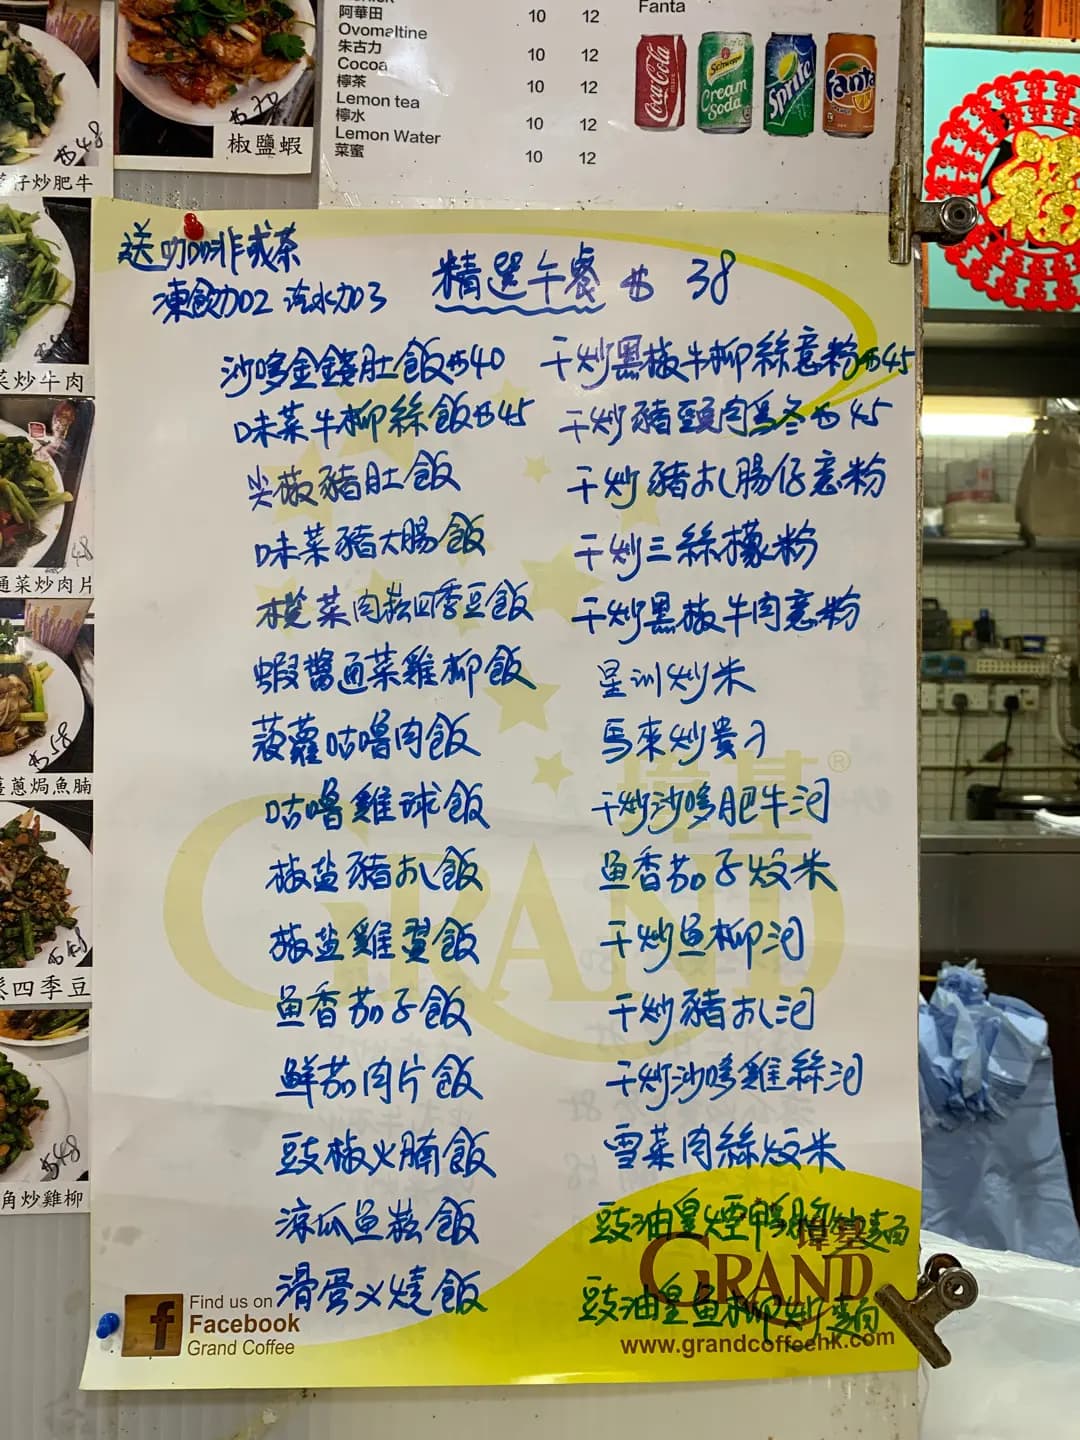 阿華田 10 12
Ovomaltine
朱古力 10 12
Cocoa
檸茶 10 12
Lemon tea
檸水 10 12
Lemon Water
菜蜜 10 12
Fanta
Coca-Cola
Schweppes
Cream Soda
Sprite
Fanta
48
仔炒肥牛
椒鹽蝦
菜炒牛肉
48
通菜炒肉片
58
薑蔥焗魚腩
四季豆
48
角炒雞柳
福
送咖啡或茶
凍飲加2 汽水加3
精選午餐 38
沙嗲金錢肚飯 40
味菜牛柳絲飯 45
尖椒豬肚飯
味菜豬大腸飯
欖菜肉松四季豆飯
蝦醬通菜雞柳飯
菠蘿咕嚕肉飯
咕嚕雞球飯
椒盐豬扒飯
椒盐雞翼飯
鱼香茄子飯
鮮茄肉片飯
豉椒火腩飯
涼瓜鱼松飯
滑蛋义燒飯
干炒黑椒牛柳絲意粉 45
干炒豬頸肉烏冬 45
干炒豬扒腸仔意粉
干炒三絲檬粉
干炒黑椒牛肉意粉
星洲炒米
馬來炒貴刁
干炒沙嗲肥牛河
鱼香茄子炆米
干炒鱼柳河
干炒豬扒河
干炒沙嗲雞絲河
雪菜肉絲炆米
豉油皇煙鴨胸炒麵
豉油皇鱼柳炒麵
煒基®
GRAND
煒基
GRAND
www.grandcoffeehk.com
Find us on
Facebook
Grand Coffee